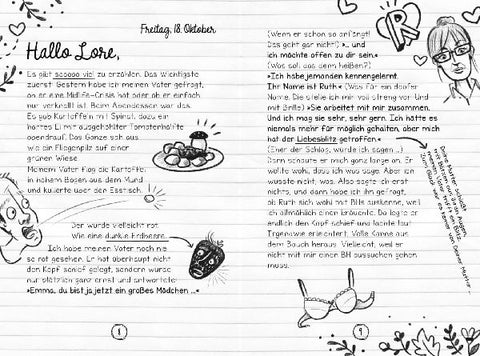 Freitag, 18. Oktober
Hallo Lore,
Es gibt soooo viel zu erzählen. Das Wichtigste
zuerst: Gestern habe ich meinen Vater gefragt,
ob er eine Midlife-Crisis hat oder ob er einfach
nur verknallt ist. Beim Abendessen war das.
Es gab Kartoffeln mit Spinat, dazu ein
hartes Ei mit ausgehöhlter Tomatenhälfte
obendrauf. Das Ganze sah aus
wie ein Fliegenpilz auf einer
grünen Wiese.
Meinem Vater flog die Kartoffel
in hohem Bogen aus dem Mund
und kullerte über den Esstisch.
Der wurde vielleicht rot.
Wie eine dunkle Erdbeere.
Ich habe meinen Vater noch nie
so rot gesehen. Er hat überhaupt nicht
den Kopf schief gelegt, sondern wurde
nur plötzlich ganz ernst und antwortete:
»Emma, du bist ja jetzt ein großes Mädchen ...«
8
(Wenn er schon so anfängt!
Das geht gar nicht!) »... und
ich möchte offen zu dir sein.«
(Was soll das denn heißen?)
»Ich habe jemanden kennengelernt.
Ihr Name ist Ruth.« (Was für ein doofer
Name. Die stelle ich mir voll streng vor. Und
mit Brille.) »Sie arbeitet mit mir zusammen.
Und ich mag sie sehr, sehr gern. Ich hätte es
niemals mehr für möglich gehalten, aber mich
hat der Liebesblitz getroffen.«
(Eher der Schlag, würde ich sagen ...)
Dann schaute er mich ganz lange an. Er
wollte wohl, dass ich was sage. Aber ich
wusste nicht, was. Also sagte ich erst
nichts, und dann habe ich ihn gefragt,
ob Ruth sich wohl mit BHs auskenne, weil
ich allmählich einen bräuchte. Da legte er
endlich den Kopf schief und lachte laut.
Irgendwie erleichtert. Volle Kanne aus
dem Bauch heraus. Vielleicht, weil er
nicht mit mir einen BH aussuchen gehen
muss.
R
9